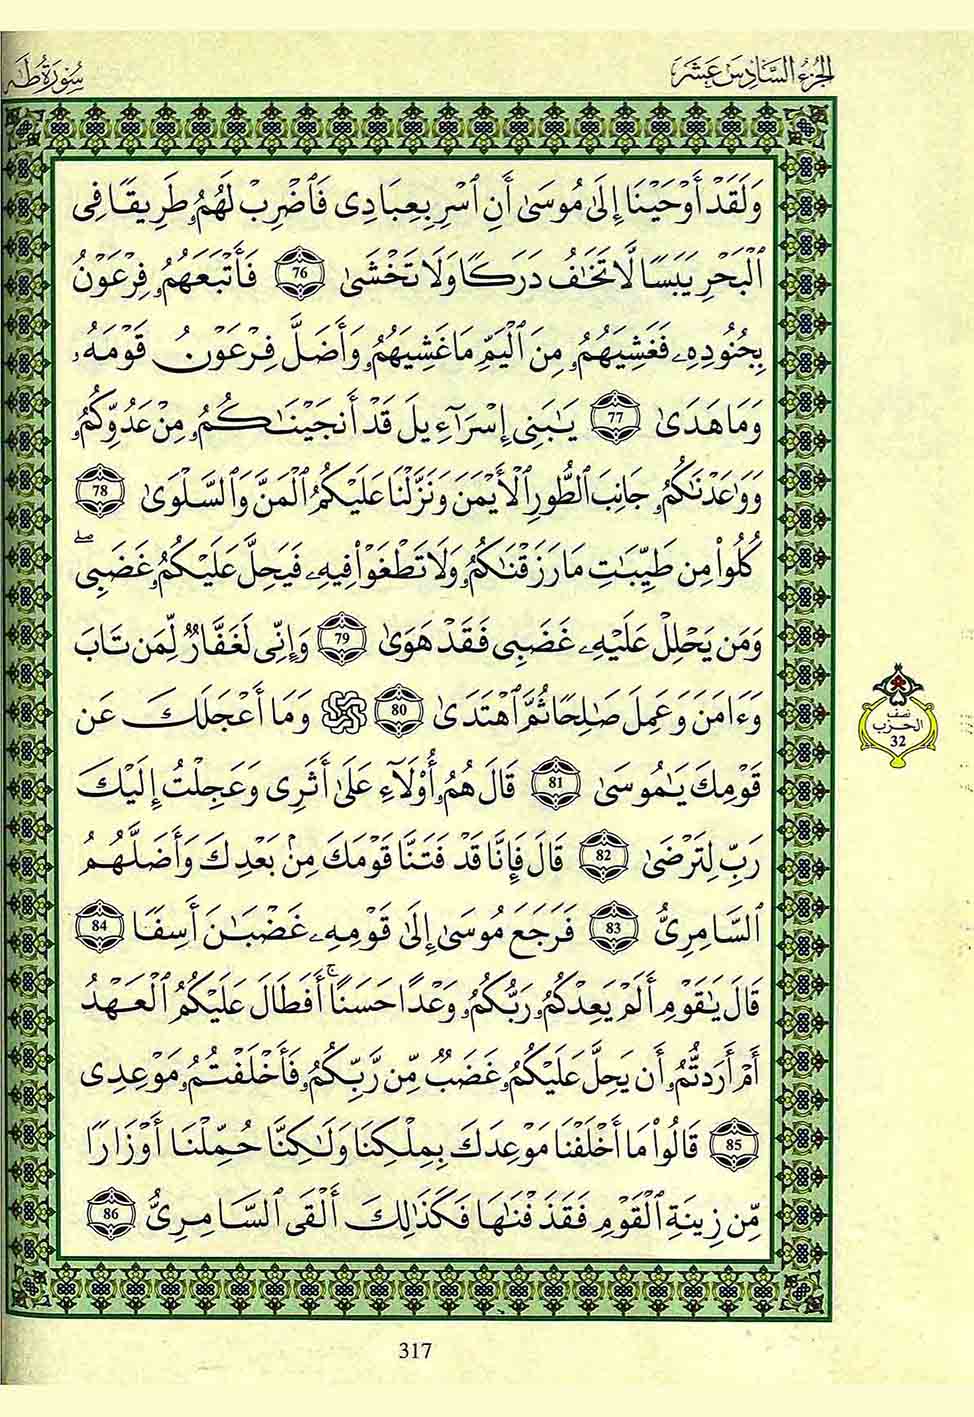 الجزء السادس عشر
سورة طه
وَلَقَدْ أَوْحَيْنَا إِلَىٰ مُوسَىٰ أَنِ ٱسْرِ بِعِبَادِى فَٱضْرِبْ لَهُمُۥ طَرِيقًا فِى
ٱلْبَحْرِ يَبَسًا لَّا تَخَٰفُ دَرَكًا وَلَا تَخْشَىٰ 76 فَأَتْبَعَهُمُۥ فِرْعَوْنُ
بِجُنُودِهِۦ فَغَشِيَهُمُۥ مِنَ ٱلْيَمِّ مَا غَشِيَهُمُۥ وَأَضَلَّ فِرْعَوْنُ قَوْمَهُۥ
وَمَا هَدَىٰ 77 يَٰبَنِى إِسْرَآءِيلَ قَدْ أَنجَيْنَٰكُمُۥ مِنْ عَدُوِّكُمُۥ
وَوَٰعَدْنَٰكُمُۥ جَانِبَ ٱلطُّورِ ٱلْأَيْمَنَ وَنَزَّلْنَا عَلَيْكُمُ ٱلْمَنَّ وَٱلسَّلْوَىٰ 78
كُلُوا۟ مِن طَيِّبَٰتِ مَا رَزَقْنَٰكُمُۥ وَلَا تَطْغَوْا۟ فِيهِۦ فَيَحِلَّ عَلَيْكُمُۥ غَضَبِى ۖ
وَمَن يَحْلِلْ عَلَيْهِۦ غَضَبِى فَقَدْ هَوَىٰ 79 وَإِنِّى لَغَفَّارٌ لِّمَن تَابَ
وَءَامَنَ وَعَمِلَ صَٰلِحًا ثُمَّ ٱهْتَدَىٰ 80 وَمَا أَعْجَلَكَ عَن
قَوْمِكَ يَٰمُوسَىٰ 81 قَالَ هُمُۥ أُو۟لَآءِ عَلَىٰ أَثَرِى وَعَجِلْتُ إِلَيْكَ
رَبِّ لِتَرْضَىٰ 82 قَالَ فَإِنَّا قَدْ فَتَنَّا قَوْمَكَ مِنۢ بَعْدِكَ وَأَضَلَّهُمُ
ٱلسَّامِرِىُّ 83 فَرَجَعَ مُوسَىٰ إِلَىٰ قَوْمِهِۦ غَضْبَٰنَ أَسِفًا 84
قَالَ يَٰقَوْمِ أَلَمْ يَعِدْكُمُۥ رَبُّكُمُۥ وَعْدًا حَسَنًا ۚ أَفَطَالَ عَلَيْكُمُ ٱلْعَهْدُ
أَمْ أَرَدتُّمُۥ أَن يَحِلَّ عَلَيْكُمُۥ غَضَبٌ مِّن رَّبِّكُمُۥ فَأَخْلَفْتُمُۥ مَوْعِدِى
85 قَالُوا۟ مَا أَخْلَفْنَا مَوْعِدَكَ بِمِلْكِنَا وَلَٰكِنَّا حُمِّلْنَا أَوْزَارًا
مِّن زِينَةِ ٱلْقَوْمِ فَقَذَفْنَٰهَا فَكَذَٰلِكَ أَلْقَى ٱلسَّامِرِىُّ 86
نصف
الحزب
32
317